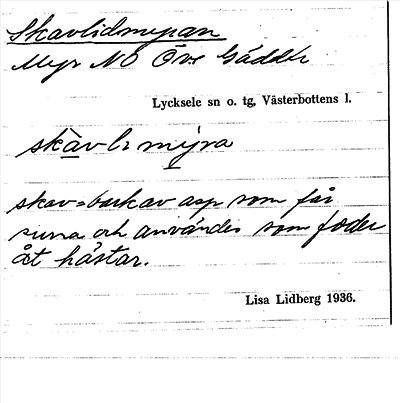 Skavlidmyran
Myr NO Övr Gäddtr
Lycksele sn o. tg, Västerbottens l.
skavli mýra
skav = bark av asp som får
surna och användes som foder
åt hästar.
Lisa Lidberg 1936.